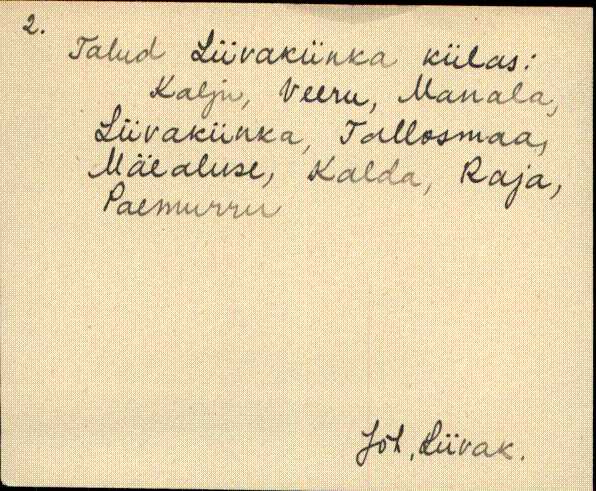 2.
Talud Liivakünka külas:
Kalju, Veeru, Manala,
Liivakünka, Tallosmaa,
Mäealuse, Kalda, Raja,
Paemurru
Joh. Liivak.